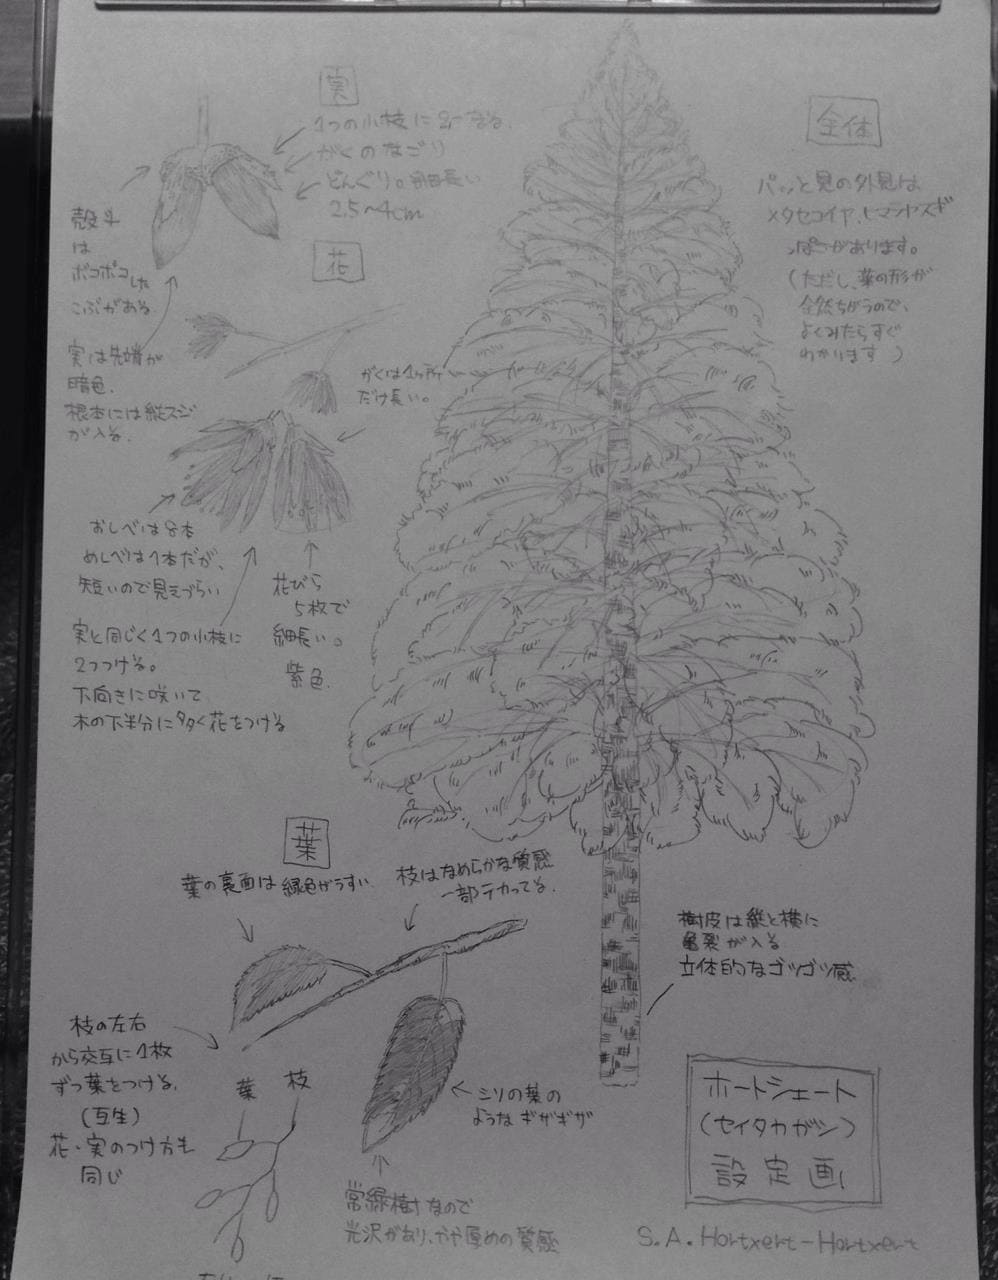 実
1つの小枝に2つなる。
がくのなごり
どんぐり。細長い
2.5~4cm
殻斗
は
ボコボコした
こぶがある
実は先端が
暗色。
根本には縦スジ
が入る。
花
がくは1ヶ所
だけ長い。
おしべは8本
めしべは1本だが、
短いので見えづらい
花びら
5枚で
細長い。
紫色。
実と同じく1つの小枝に
2つつける。
下向きに咲いて
木の下半分に多く花をつける
全体
パッと見の外見は
メタセコイヤ、ヒマラヤスギ
っぽさがあります。
(ただし、葉の形が
全然ちがうので、
よくみたらすぐ
わかります)
葉
葉の裏面は緑色がうすい
枝はなめらかな質感
一部テカってる。
樹皮は縦と横に
亀裂が入る
立体的なゴツゴツ感
枝の左右
から交互に1枚
ずつ葉をつける。
(互生)
花・実のつけ方も
同じ
葉
枝
ギザギザ
常緑樹なので
光沢があり、やや厚めの質感
ホートシェート
(セイタカガシ)
設定画
S.A.Hortxert-Hortxert